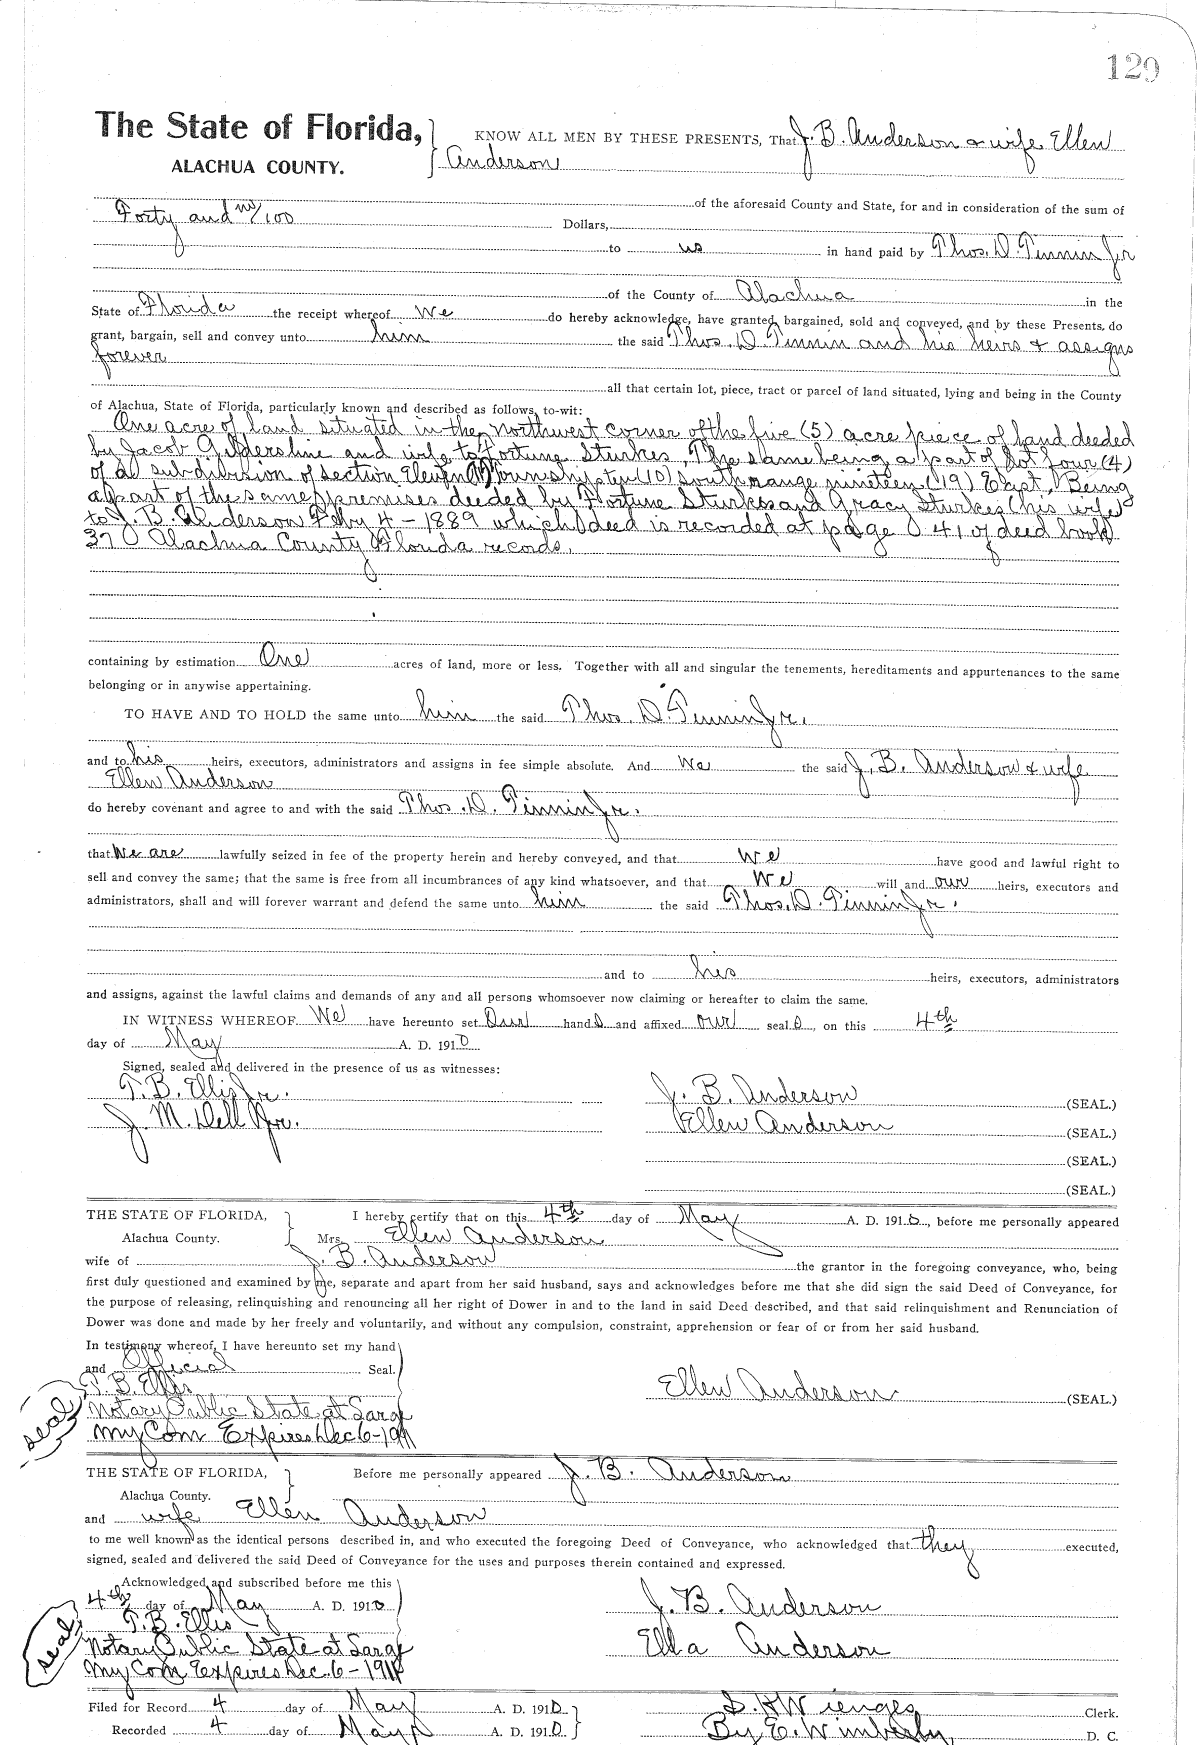 129
The State of Florida, KNOW ALL MEN BY THESE PRESENTS, That J. B. Anderson & wife Ellen
ALACHUA COUNTY. Anderson
of the aforesaid County and State, for and in consideration of the sum of
Forty and no/100 Dollars,
to us in hand paid by Thos. D. Tinnin Jr
of the County of Alachua in the
State of Florida the receipt whereof We do hereby acknowledge, have granted, bargained, sold and conveyed, and by these Presents, do
grant, bargain, sell and convey unto him the said Thos. D. Tinnin and his heirs & assigns
forever
all that certain lot, piece, tract or parcel of land situated, lying and being in the County
of Alachua, State of Florida, particularly known and described as follows, to-wit:
One acre of land situated in the Northwest corner of the five (5) acre piece of land deeded
by Jacob and wife to Fortune Sturkes, The same being a part of Lot four (4)
of a subdivision of section Eleven (11) Township ten (10) south range nineteen (19) East, Being
a part of the same premises deeded by Fortune Sturkes and Gracy Sturkes (his wife)
to J. B. Anderson Feby 4 - 1889 which deed is recorded at page 41 of deed book
37 Alachua County Florida records.
containing by estimation One acres of land, more or less. Together with all and singular the tenements, hereditaments and appurtenances to the same
belonging or in anywise appertaining.
TO HAVE AND TO HOLD the same unto him the said Thos. D. Tinnin Jr.
and to his heirs, executors, administrators and assigns in fee simple absolute. And We the said J. B. Anderson & wife
Ellen Anderson
do hereby covenant and agree to and with the said Thos. D. Tinnin Jr.
that We are lawfully seized in fee of the property herein and hereby conveyed, and that We have good and lawful right to
sell and convey the same; that the same is free from all incumbrances of any kind whatsoever, and that We will and our heirs, executors and
administrators, shall and will forever warrant and defend the same unto him the said Thos. D. Tinnin Jr.
and to his heirs, executors, administrators
and assigns, against the lawful claims and demands of any and all persons whomsoever now claiming or hereafter to claim the same.
IN WITNESS WHEREOF We have hereunto set Our hands and affixed our seals, on this 4th
day of May A. D. 1910
Signed, sealed and delivered in the presence of us as witnesses:
T. B. Ellis Jr. J. B. Anderson (SEAL.)
J. M. Dell Jr. Ellen Anderson (SEAL.)
(SEAL.)
(SEAL.)
THE STATE OF FLORIDA, I hereby certify that on this 4th day of May A. D. 1910, before me personally appeared
Alachua County. Mrs. Ellen Anderson
wife of J. B. Anderson the grantor in the foregoing conveyance, who, being
first duly questioned and examined by me, separate and apart from her said husband, says and acknowledges before me that she did sign the said Deed of Conveyance, for
the purpose of releasing, relinquishing and renouncing all her right of Dower in and to the land in said Deed described, and that said relinquishment and Renunciation of
Dower was done and made by her freely and voluntarily, and without any compulsion, constraint, apprehension or fear of or from her said husband.
In testimony whereof, I have hereunto set my hand
and Official Seal.
T. B. Ellis Ellen Anderson (SEAL.)
seal Notary Public State at Large
My Com Expires Dec 6-1911
THE STATE OF FLORIDA, Before me personally appeared J. B. Anderson
Alachua County.
and wife Ellen Anderson
to me well known as the identical persons described in, and who executed the foregoing Deed of Conveyance, who acknowledged that they executed,
signed, sealed and delivered the said Deed of Conveyance for the uses and purposes therein contained and expressed.
Acknowledged and subscribed before me this
4th day of May A. D. 1910 J. B. Anderson
T. B. Ellis
seal Notary Public State at Large Ella Anderson
My Com Expires Dec. 6-1911
Filed for Record 4 day of May A. D. 1910 S. H Wienges Clerk.
Recorded 4 day of May A. D. 1910. By E. Wimberly, D. C.